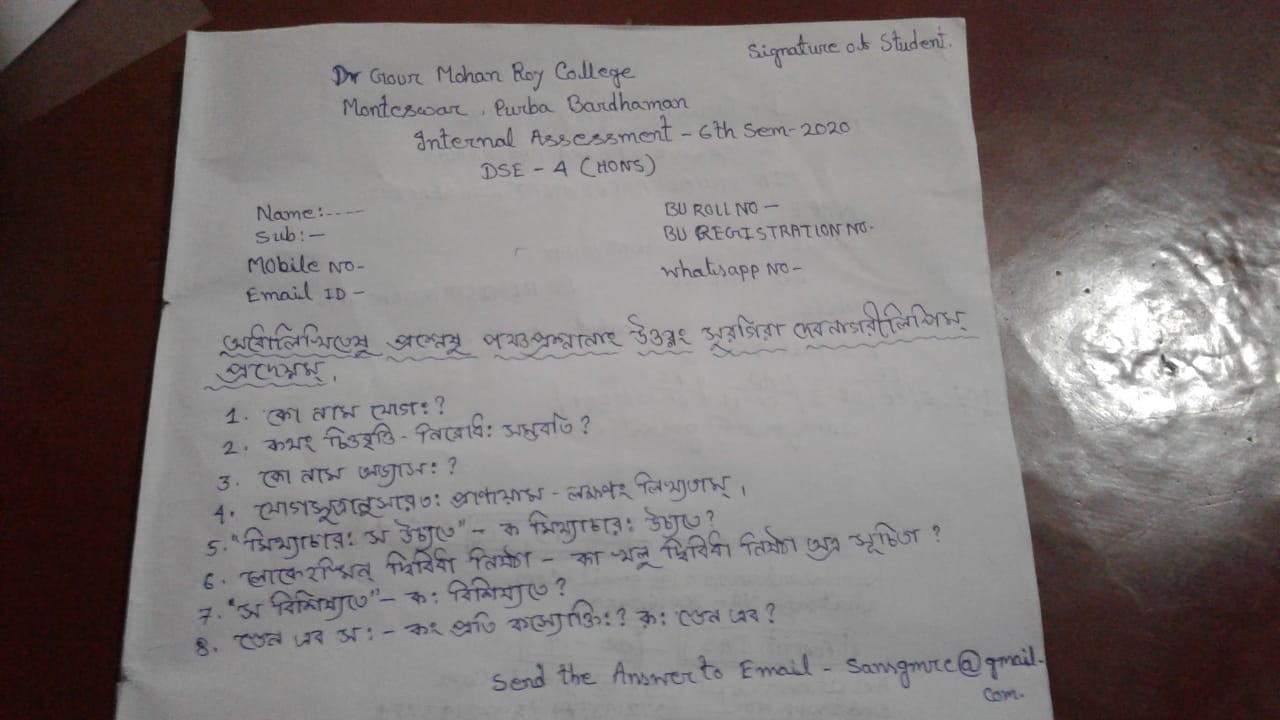 Signature of Student.
Dr Gour Mohan Roy College
Monteswar, Purba Bardhaman
Internal Assessment - 6th Sem-2020
DSE - 4 (HONS)
Name:---- BU ROLL NO -
Sub:- BU REGISTRATION NO.
Mobile NO- Whatsapp NO-
Email ID -
অধোলিখিতেষু প্রশ্নেষু পঞ্চপ্রশ্নানাং উত্তরং সুরগিরা দেবনাগরীলিপিম্
প্রদেয়ম্.
1. কো নাম যোগঃ?
2. কথং চিত্তবৃত্তি - নিরোধঃ সম্ভবতি?
3. কো নাম অভ্যাসঃ?
4. যোগসূত্রানুসারতঃ প্রাণায়াম - লক্ষণং লিখ্যতাম্।
5. "মিথ্যাচারঃ স উচ্যতে" - ক মিথ্যাচারঃ উচ্যতে?
6. লোকেঽস্মিন্ দ্বিবিধা নিষ্ঠা - কা খলু দ্বিবিধা নিষ্ঠা অত্র সূচিতা?
7. "স বিশিষ্যতে" - কঃ বিশিষ্যতে?
8. তেন এব সঃ - কং প্রতি কস্যোক্তিঃ? কঃ তেন এব?
Send the Answer to Email - Sansgmrc@gmail.
com.